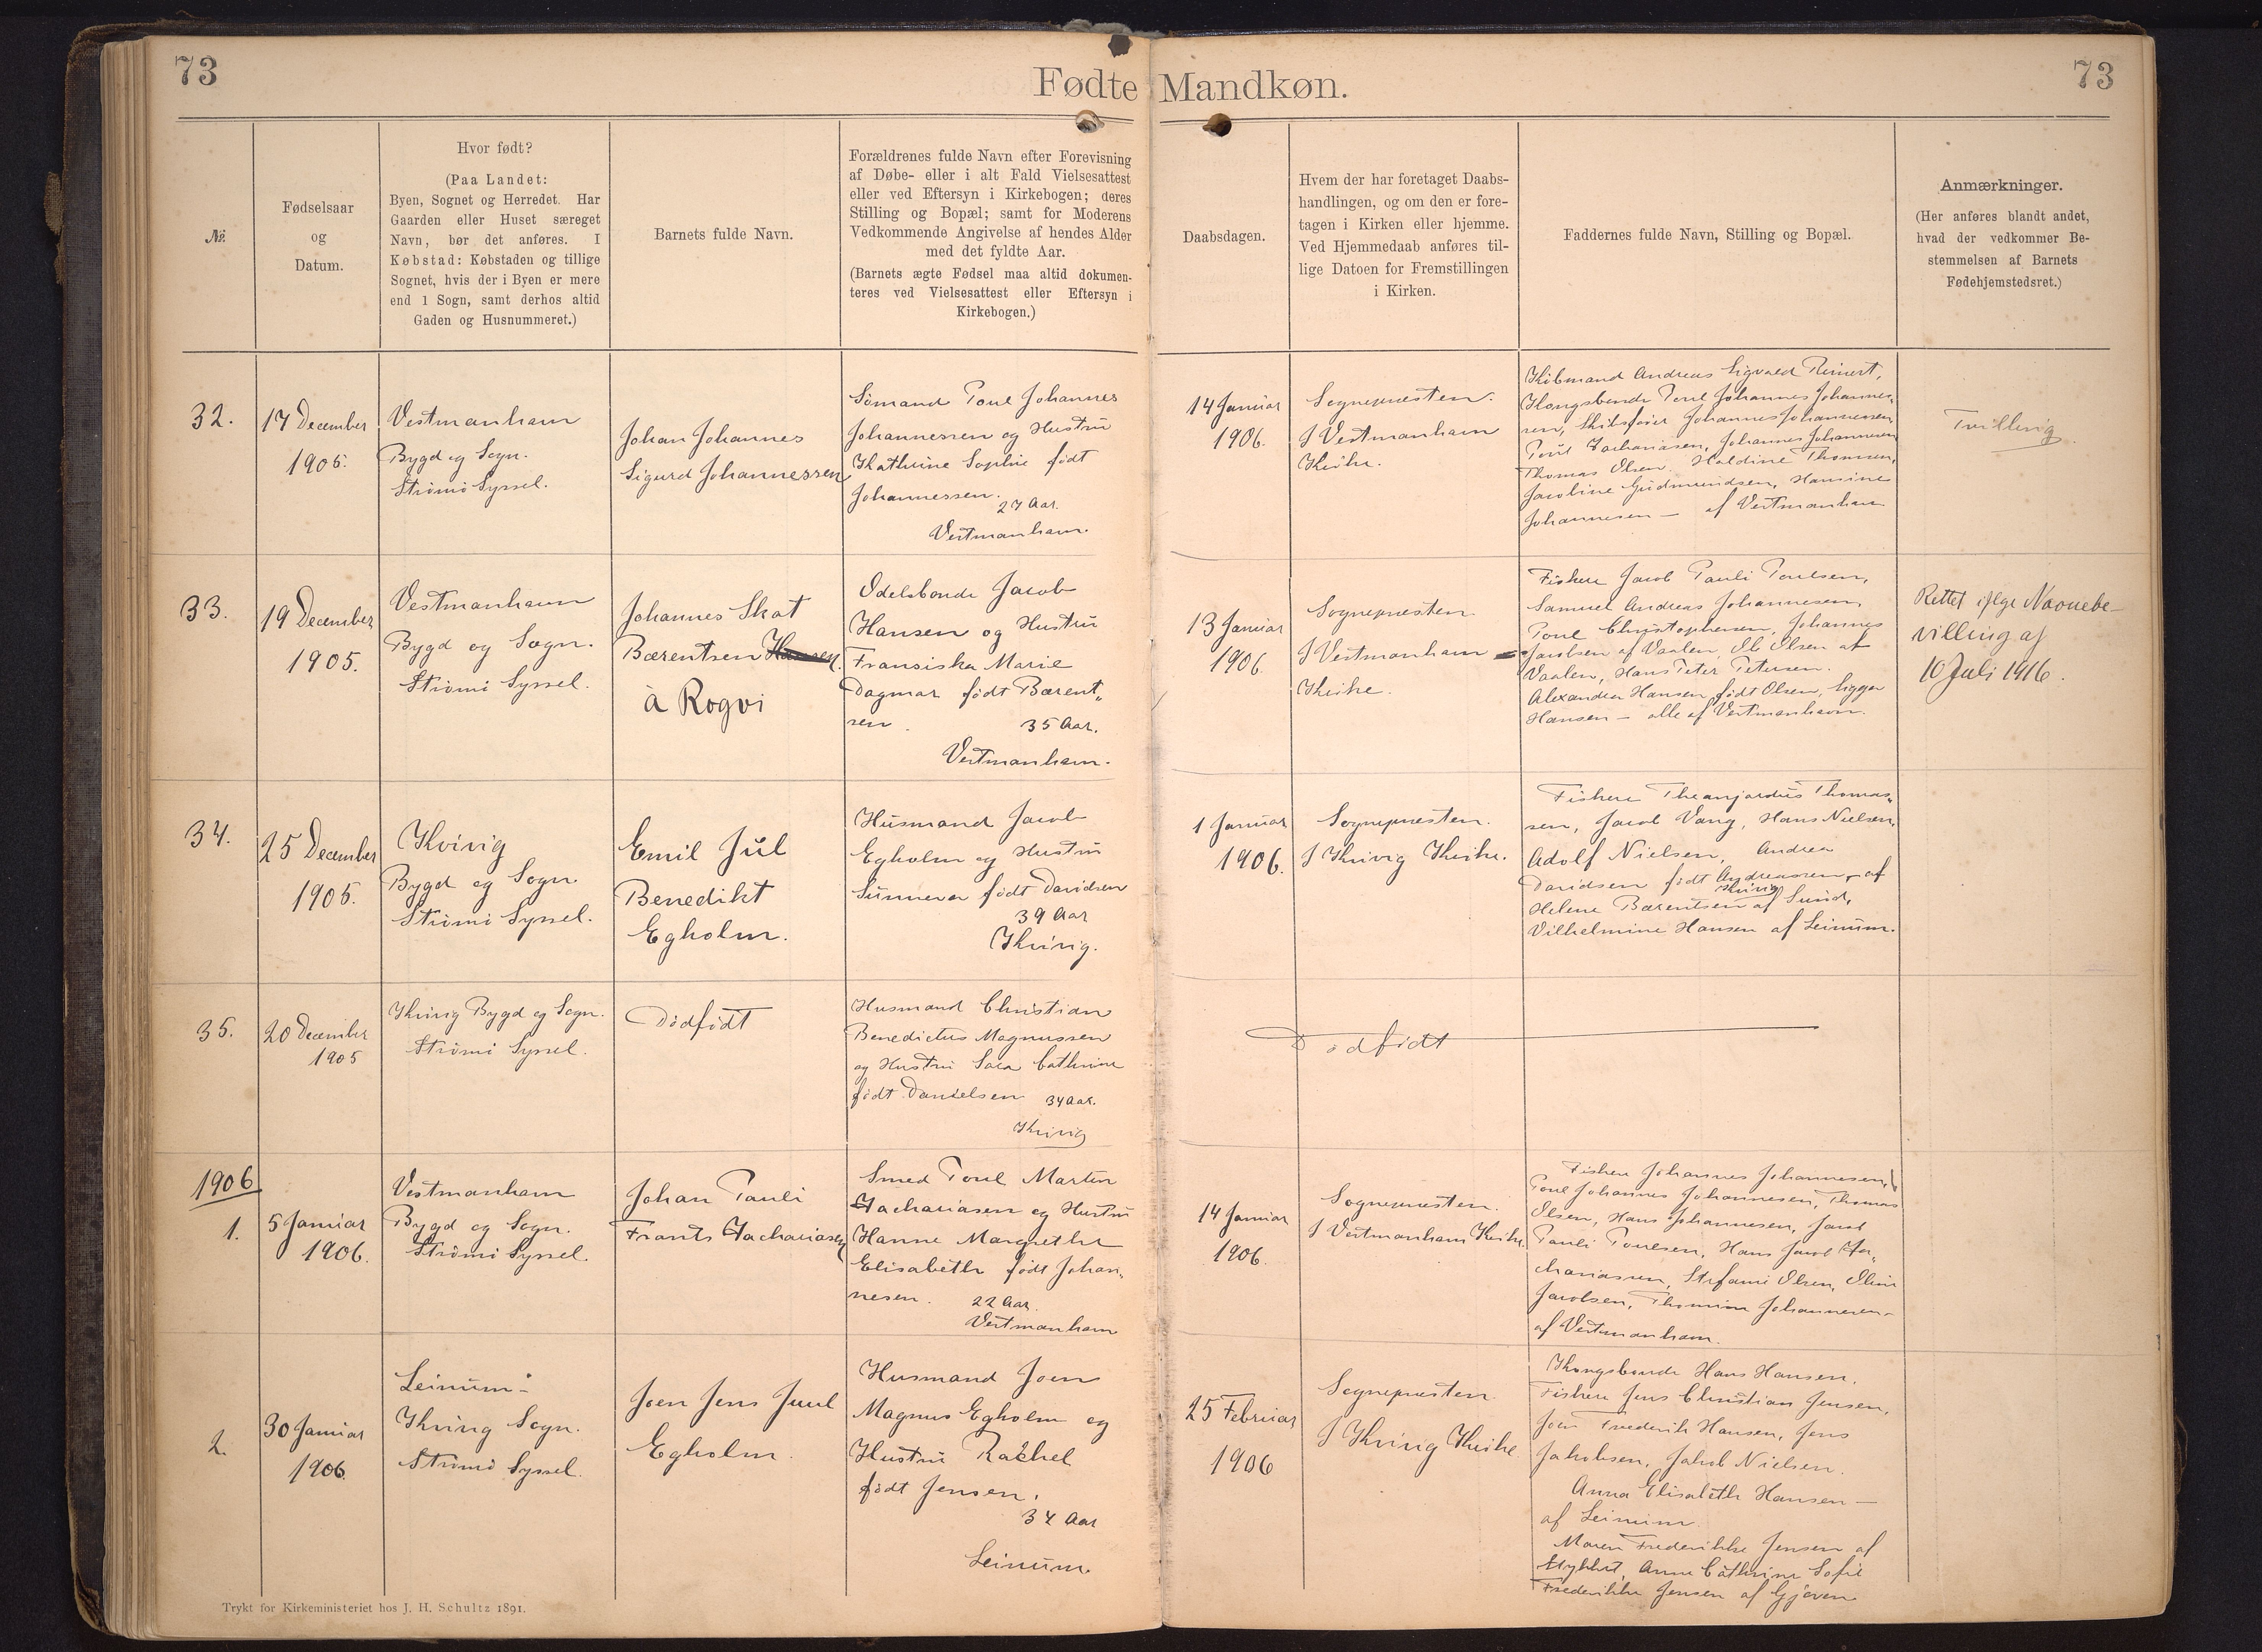 73
Fødte Mandkøn.
73
№.
Fødselsaar
og
Datum.
Hvor født?
(Paa Landet:
Byen, Sognet og Herredet. Har
Gaarden eller Huset særeget
Navn, bør det anføres. I
Købstad: Købstaden og tillige
Sognet, hvis der i Byen er mere
end 1 Sogn, samt derhos altid
Gaden og Husnummeret.)
Barnets fulde Navn.
Forældrenes fulde Navn efter Forevisning
af Døbe- eller i alt Fald Vielsesattest
eller ved Eftersyn i Kirkebogen; deres
Stilling og Bopæl; samt for Moderens
Vedkommende Angivelse af hendes Alder
med det fyldte Aar.
(Barnets ægte Fødsel maa altid dokumen-
teres ved Vielsesattest eller Eftersyn i
Kirkebogen.)
Daabsdagen.
Hvem der har foretaget Daabs-
handlingen, og om den er fore-
tagen i Kirken eller hjemme.
Ved Hjemmedaab anføres til-
lige Datoen for Fremstillingen
i Kirken.
Faddernes fulde Navn, Stilling og Bopæl.
Anmærkninger.
(Her anføres blandt andet,
hvad der vedkommer Be-
stemmelsen af Barnets
Fødehjemstedsret.)
32.
17 December
1905.
Vestmanhavn
Bygd og Sogn.
Strömö Syssel.
Johan Johannes
Sigurd Johannessen
Sömand Poul Johannes
Johannessen og Hustru
Kathrine Sophie født
Johannessen.
27 Aar.
Vestmanhavn.
14 Januar
1906.
Sognepræsten.
I Vestmanhavn
Kirke.
Kjøbmand Andreas Sigvald Reinert,
Kongsbonde Poul Johannes Johannes-
sen, Skibsfører Johannes Johannessen
Poul Zachariasen, Johannes Johannesen
Thomas Olsen. Haldine Thomsen,
Jacobine Gudmundsen, Hansine
Johannesen — af Vestmanhavn
Tvilling.
33.
19 December
1905.
Vestmanhavn
Bygd og Sogn.
Strömö Syssel.
Johannes Skat
Bærentsen Hansen.
à Rogvi
Odelsbonde Jacob
Hansen og Hustru
Fransiska Marie
Dagmar født Bærent„
sen.
35 Aar.
Vestmanhavn.
13 Januar
1906.
Sognepræsten
I Vestmanhavn
Kirke.
Fisker Jacob Pauli Poulsen,
Samuel Andreas Johannesen,
Poul Christophersen, Johannes
Jacobsen af Vaalen, Ole Olsen af
Vaalen, Hans Peter Petersen.
Alexandra Hansen født Olsen, Sigga
Hansen — alle af Vestmanhavn.
Rettet ifølge Navnebe-
villing af
10 Juli 1916.
34.
25 December
1905.
Kvivig
Bygd og Sogn
Strömö Syssel.
Emil Jül
Benedikt
Egholm.
Husmand Jacob
Egholm og Hustru
Sunneva født Davidsen
39 Aar
Kvivig.
1 Januar
1906.
Sognepræsten.
I Kvivig Kirke.
Fisker Thomas„
sen, Jacob Vang, Hans Nielsen,
Adolf Nielsen, Andrea
Davidsen født Andreassen — af
Kvivig
Helene Bærentsen af Sund,
Vilhelmine Hansen af Leinum.
35.
20 December
1905
Kvivig Bygd og Sogn.
Strömö Syssel.
Dödfödt
Husmand Christian
Benedictus Magnussen
og Hustru Sara Cathrine
født Danielsen 34 Aar.
Kvivig
Dödfödt
1906
1.
5 Januar
1906.
Vestmanhavn
Bygd og Sogn.
Strömö Syssel.
Johan Pauli
Frants Zachariasen
Smed Poul Martin
Zachariasen og Hustru
Hanne Margrethe
Elisabeth født Johan„
nesen. 22 Aar.
Vestmanhavn
14 Januar
1906.
Sognepræsten.
I Vestmanhavn Kirke.
Fisker Johannes Johannesen,
Poul Johannes Johannesen, Thomas
Olsen, Hans Johannesen, Jacob
Pauli Poulsen, Hans Jacob Za„
chariasen, Stefani Olsen, Olevine
Jacobsen, Thomine Johannesen —
af Vestmanhavn.
2.
30 Januar
1906.
Leinum —
Kvivig Sogn.
Strömö Syssel.
Joen Jens Juul
Egholm.
Husmand Joen
Magnus Egholm og
Hustru Rakkel
født Jensen.
34 Aar
Leinum.
25 Februar
1906
Sognepræsten
I Kvivig Kirke
Kongsbonde Hans Hansen,
Fisker Jens Christian Jensen,
Joen Frederik Hansen, Jens
Jakobsen, Jakob Nielsen.
Anna Elisabeth Hansen —
af Leinum.
Maren Frederikke Jensen af
Anne Cathrine Sofie
Frederikke Jensen af Gjoven
Trykt for Kirkeministeriet hos J. H. Schultz 1891.